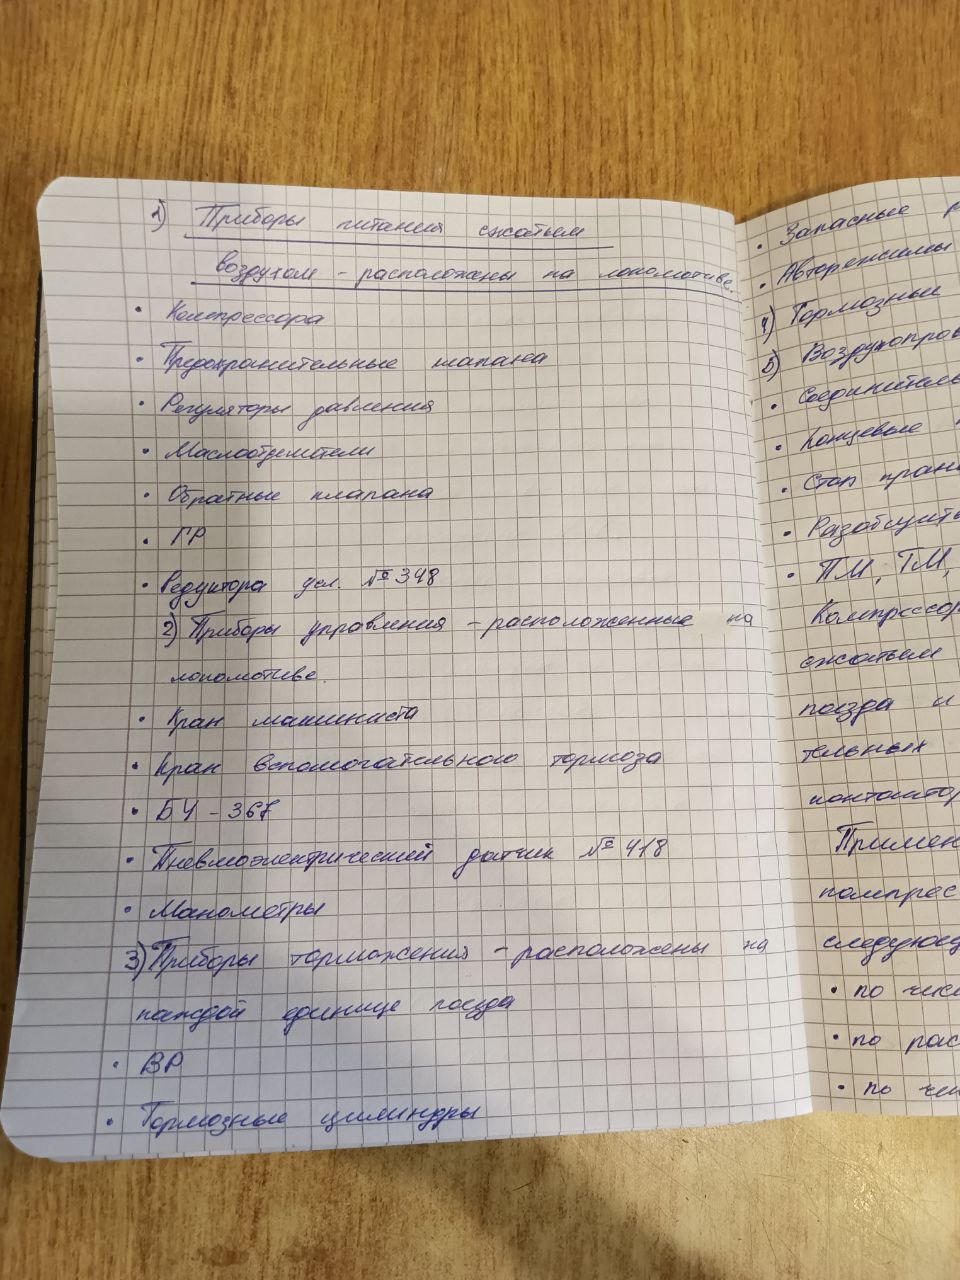 1) Приборы питания сжатым
воздухом - расположены на локомотиве.
• Компрессора
• Предохранительные клапана
• Регуляторы давления
• Маслоотделители
• Обратные клапана
• ГР
• Редуктора усл. №348
2) Приборы управления - расположенные на
локомотиве.
• Кран машиниста
• Кран вспомогательного тормоза
• БУ - 367
• Пневмоэлектрический датчик №418
• Манометры
3) Приборы торможения - расположены на
каждой единице поезда
• ВР
• Тормозные цилиндры
• Запасные р
• Авторежимы
4) Тормозные
5) Воздухопров
• Соединитель
• Концевые
• Стоп кран
• Разобщить
• ПМ, ТМ,
Компрессор
сжатым
поезда и
тельных
контактор
Примен
компрес
следующ
• по чис
• по рас
• по чи